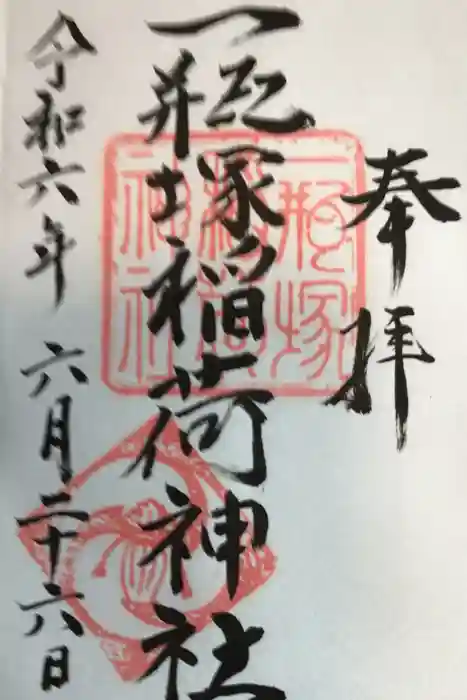 奉拝
一瓶塚稲荷神社
一瓶塚
稲荷
神社
令和六年 六月二十六日